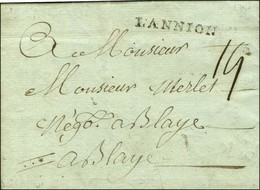 LANNION
A Monsieur
14
Monsieur Merlet
Négo.t a Blaye
a Blaye